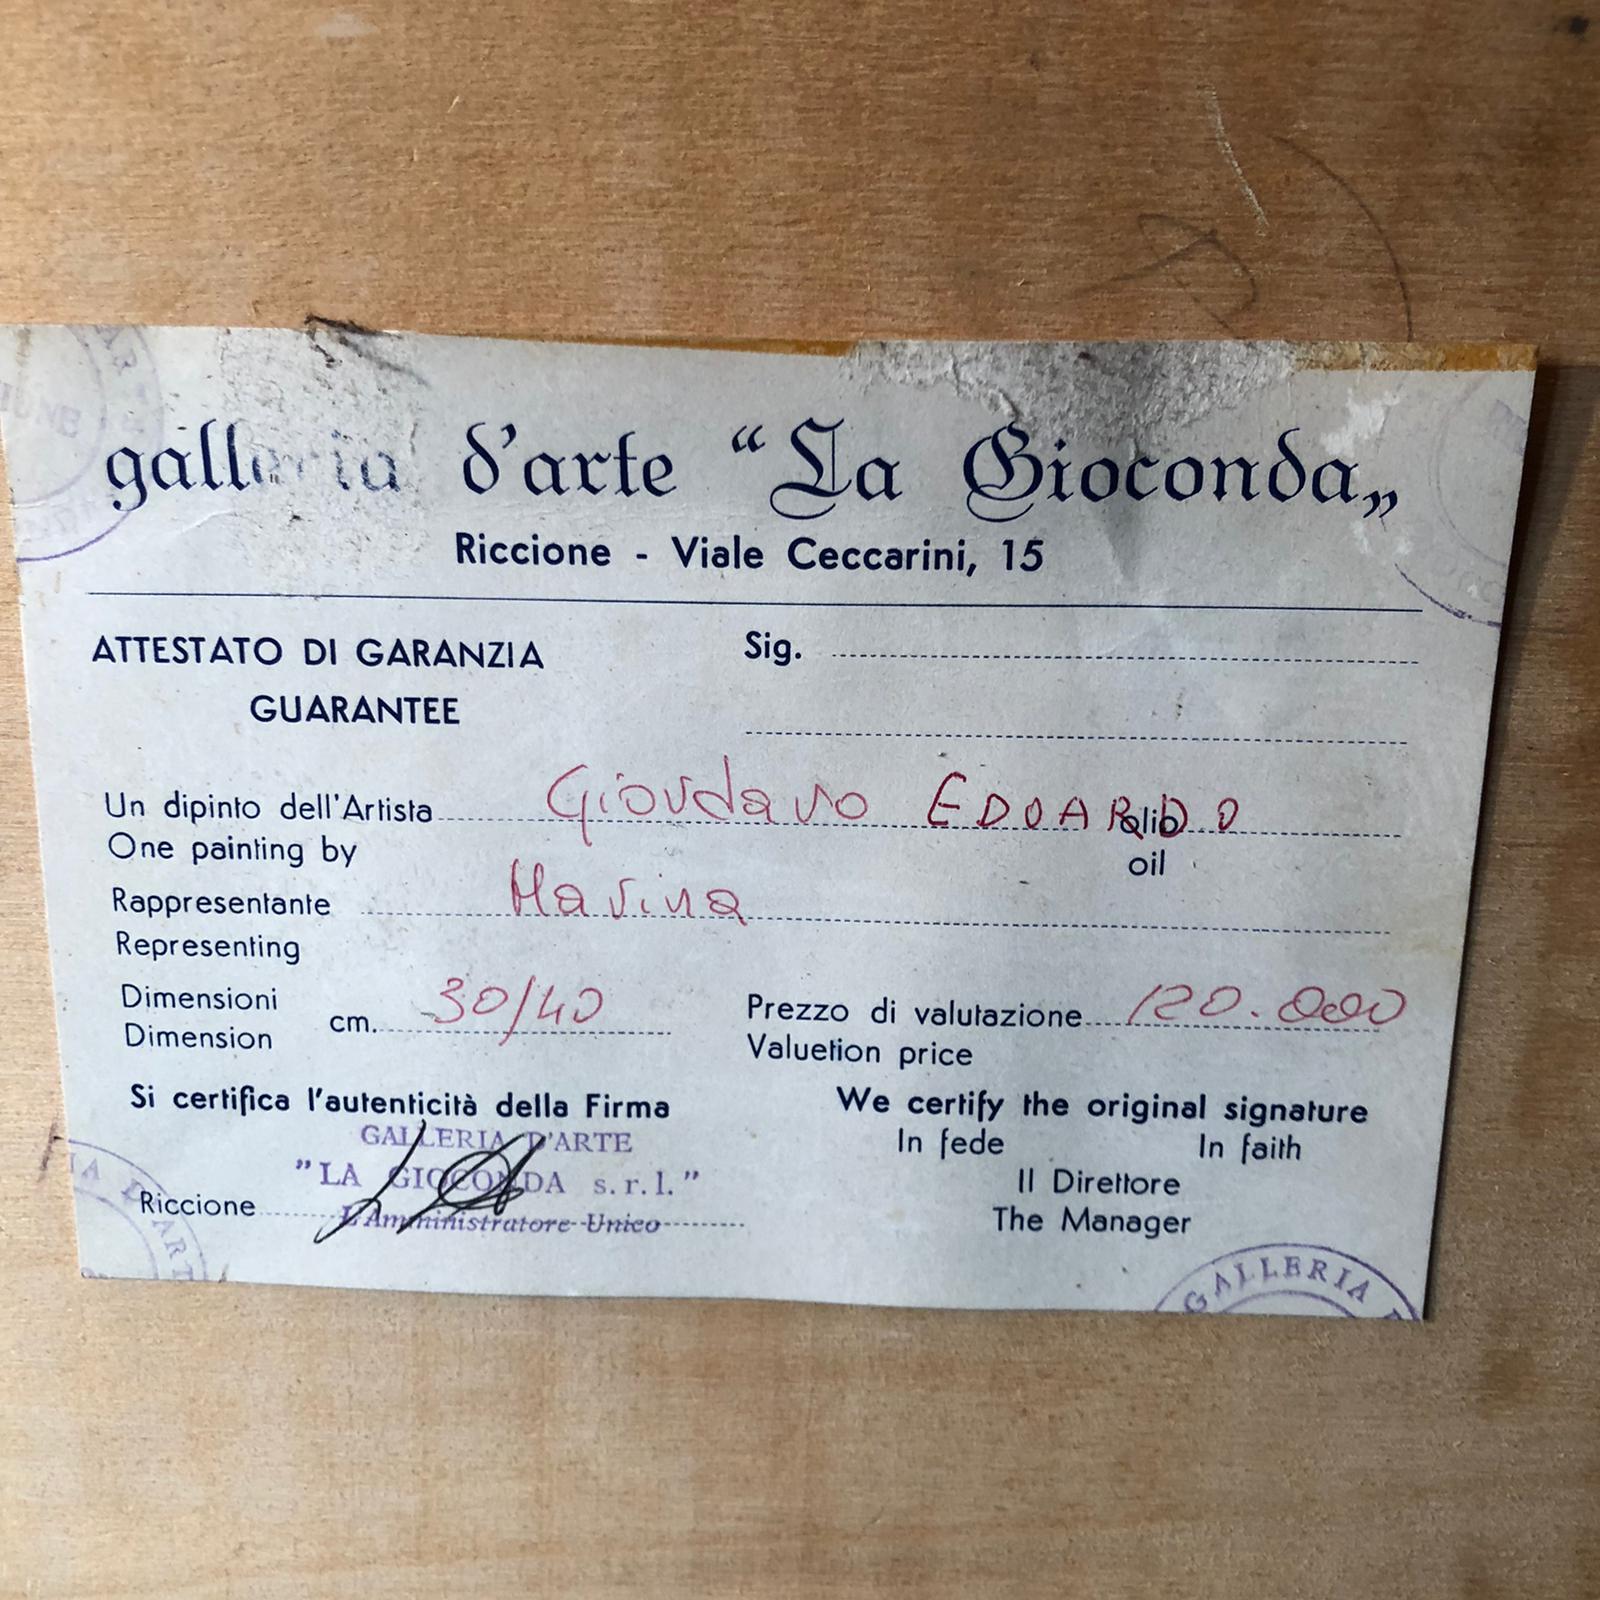 galleria d'arte “La Gioconda„
Riccione - Viale Ceccarini, 15
ATTESTATO DI GARANZIA
GUARANTEE
Sig.
Un dipinto dell'Artista Giordano EDOARDO olio
One painting by oil
Rappresentante Marina
Representing
Dimensioni
Dimension cm. 30/40
Prezzo di valutazione 120.000
Valuetion price
Si certifica l'autenticità della Firma
We certify the original signature
GALLERIA D'ARTE
In fede In faith
"LA GIOCONDA s.r.l."
Il Direttore
Riccione L'Amministratore Unico
The Manager
IA D'ART
GALLERIA